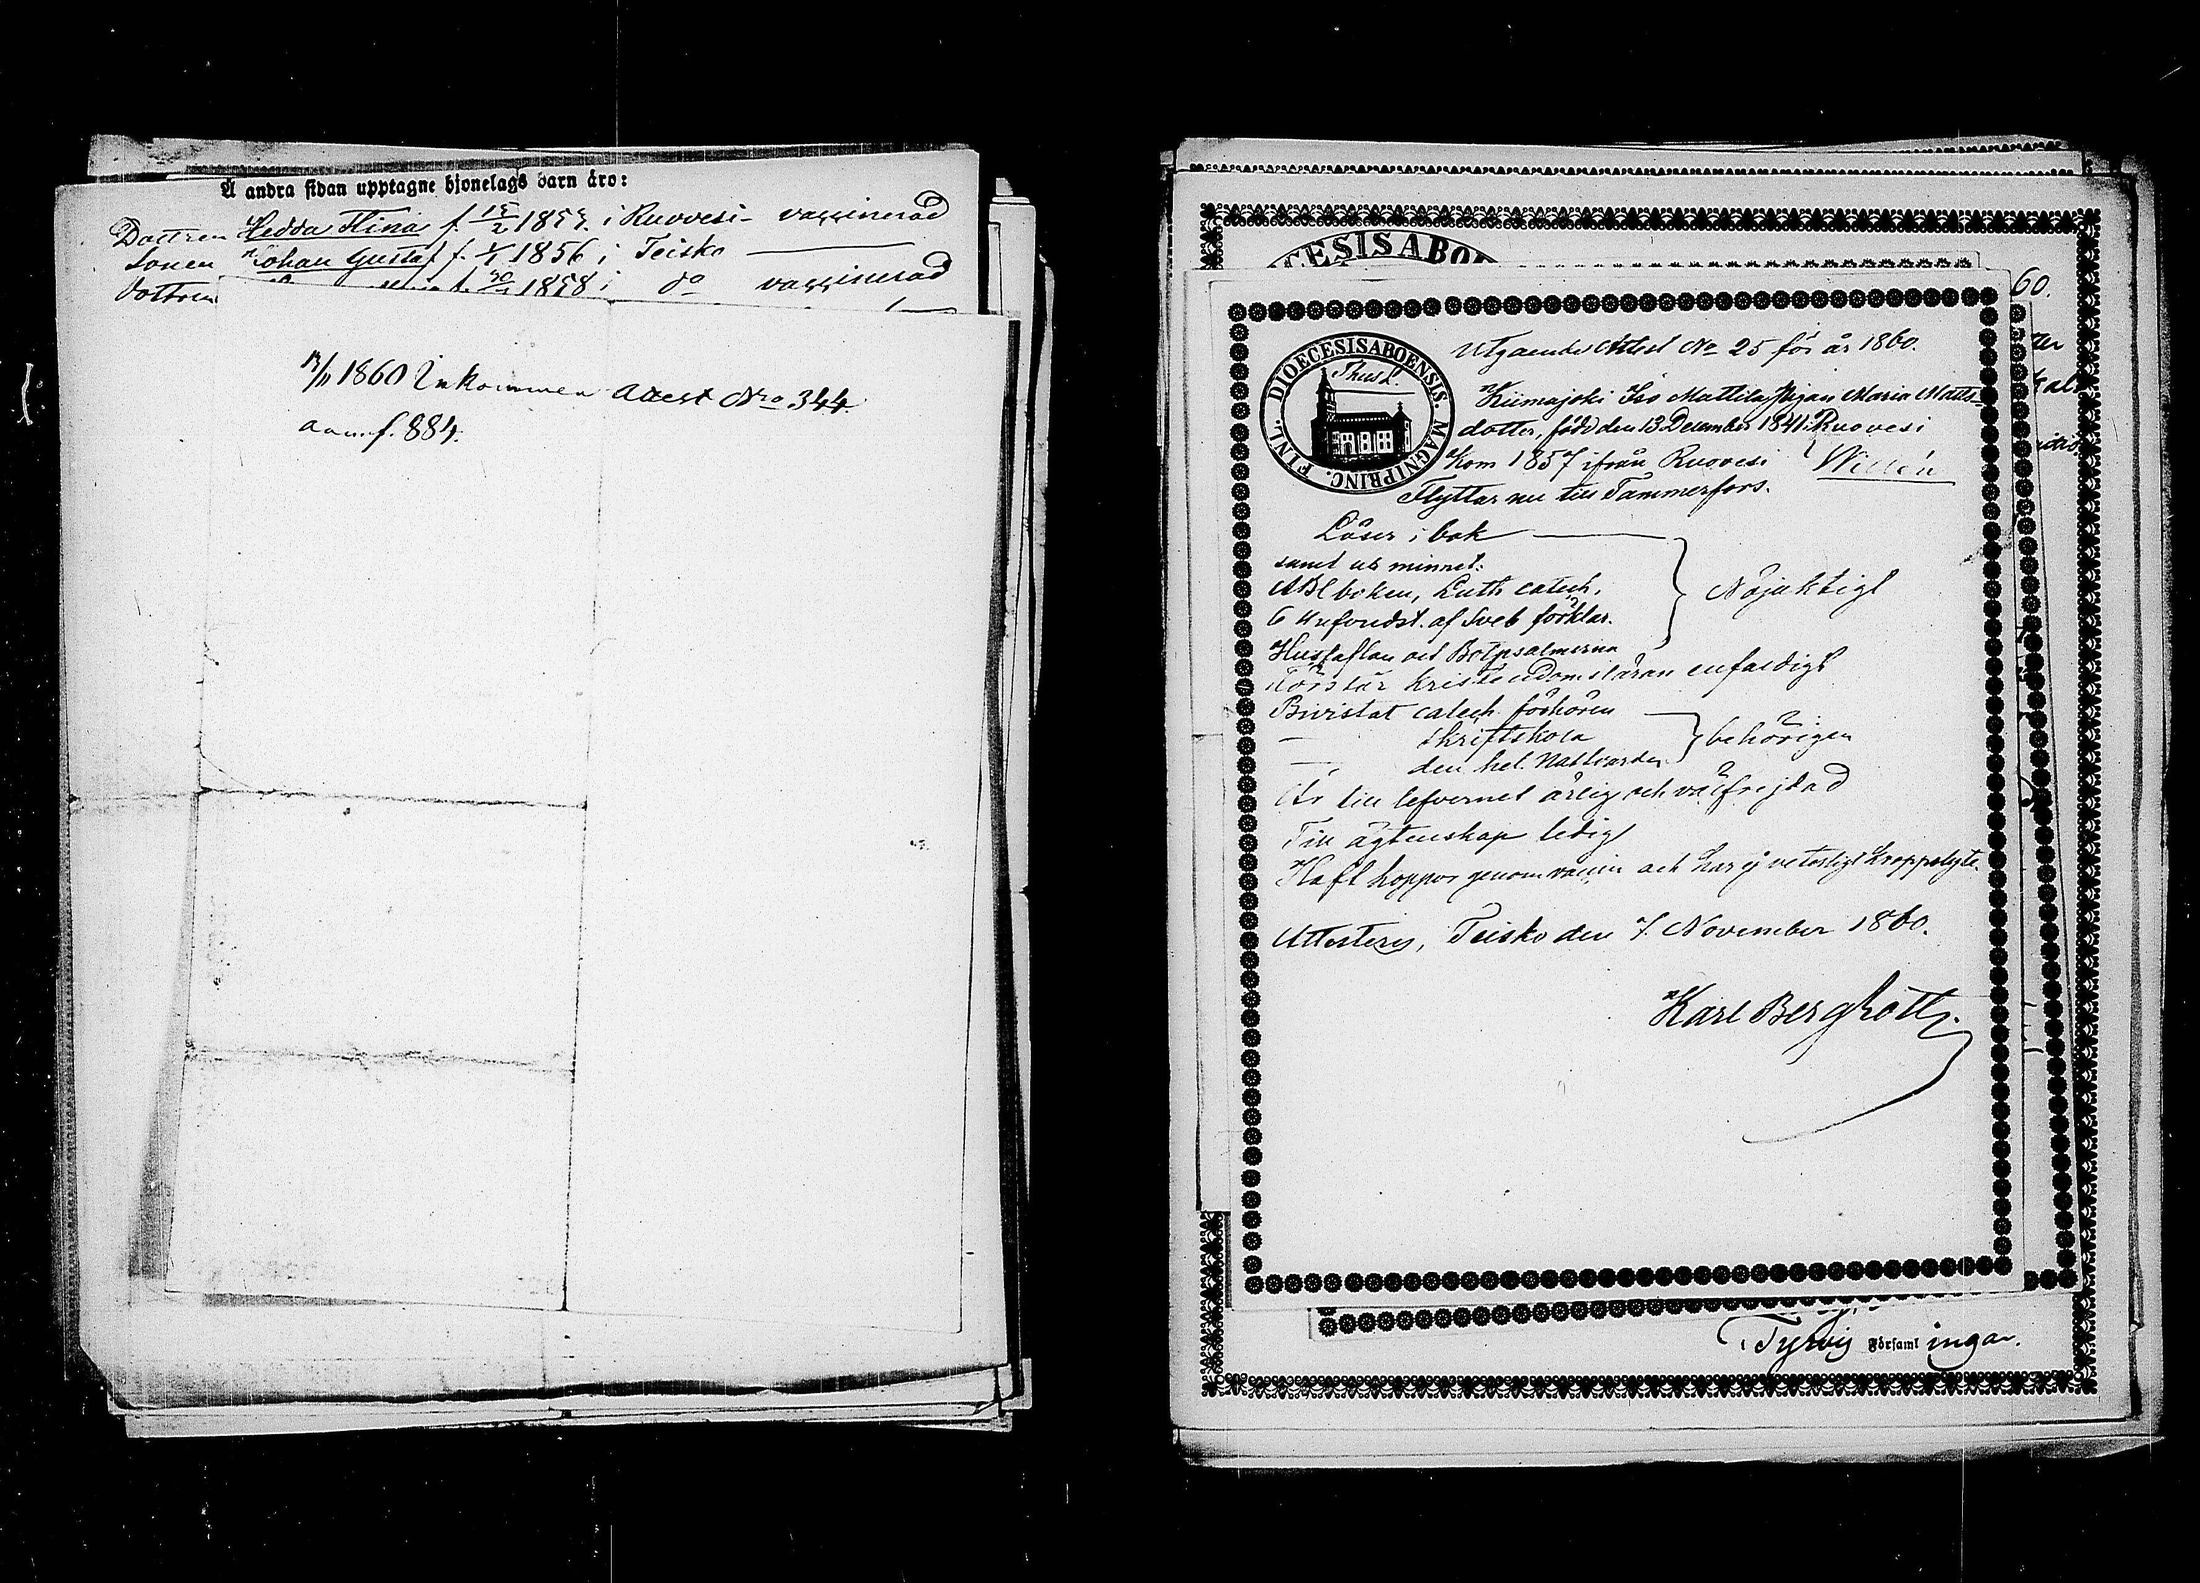 Å andra sidan upptagne hjonelags barn äro:
Dottren Hedda Stina f. 15/2 1853 i Ruovesi - vaxxinerad
Sonen Johan Gustaf f. 1/1 1856 i Teisko
dottren 1858 i do vaxxinerad
1860 Inkommen Attest Nro 344.
f. 884.
DIOECESIS ABO
60.
DIOECESIS ABOENSIS. MAGNI PRINC. FINL.
Utgaende Attest No 25 för år 1860.
Kiimajoki Iso Mattila Pigan Maria Matts-
dotter, född den 13 December 1841 i Ruovesi
Kom 1857 ifrån Ruovesi
Flyttar nu till Tammerfors.
Läser i bok
samt ur minnet:
ABC boken, Luth catech.
af Sveb förklar.
Hustaflan och Botpsalmerna
Nöjaktigt
Förstår kristendomsläran enfaldigt
Bivistat catech. förhören
— skriftskola
— den hel. Nattvarden
behörigen
Är till lefvernet ärlig och välfrejdad
Till ägtenskap ledig
Haft koppor genom vaccin och har ej veterligt kroppslyte.
Attesterar, Teisko den 7. November 1860.
Karl Bergholtz.
Tyrvis Församlingar.